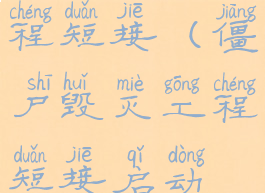 chéng duǎn jiē jiāng
程短接（僵
shī huǐ miè gōng chéng
尸毁灭工程
duǎn jiē qǐ dòng
短接启动